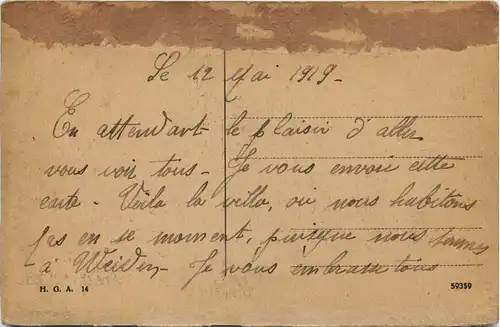 Le 12 Mai 1919 -
En attendant le plaisir d'aller
vous voir tous - Je vous envoie cette
carte - Voila la villa, où nous habitons
pas en se moment, puisque nous sommes
à Weiden - Je vous embrasse tous
H. G. A. 14
59359